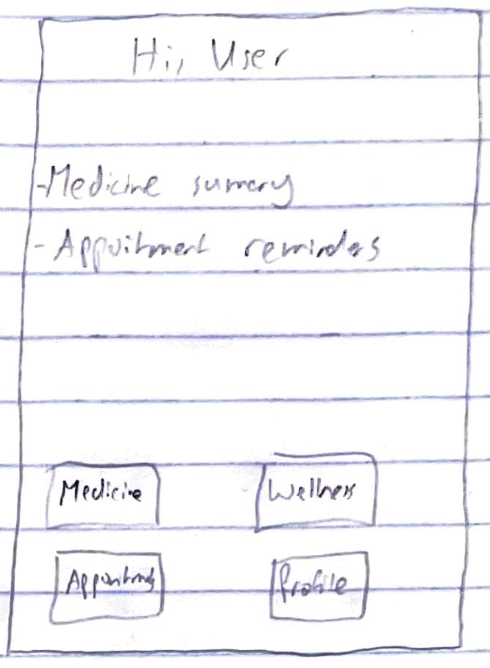 Hi, User
-Medicine sumary
- Appoitment reminders
Medicine Wellness
Appoitments Profile